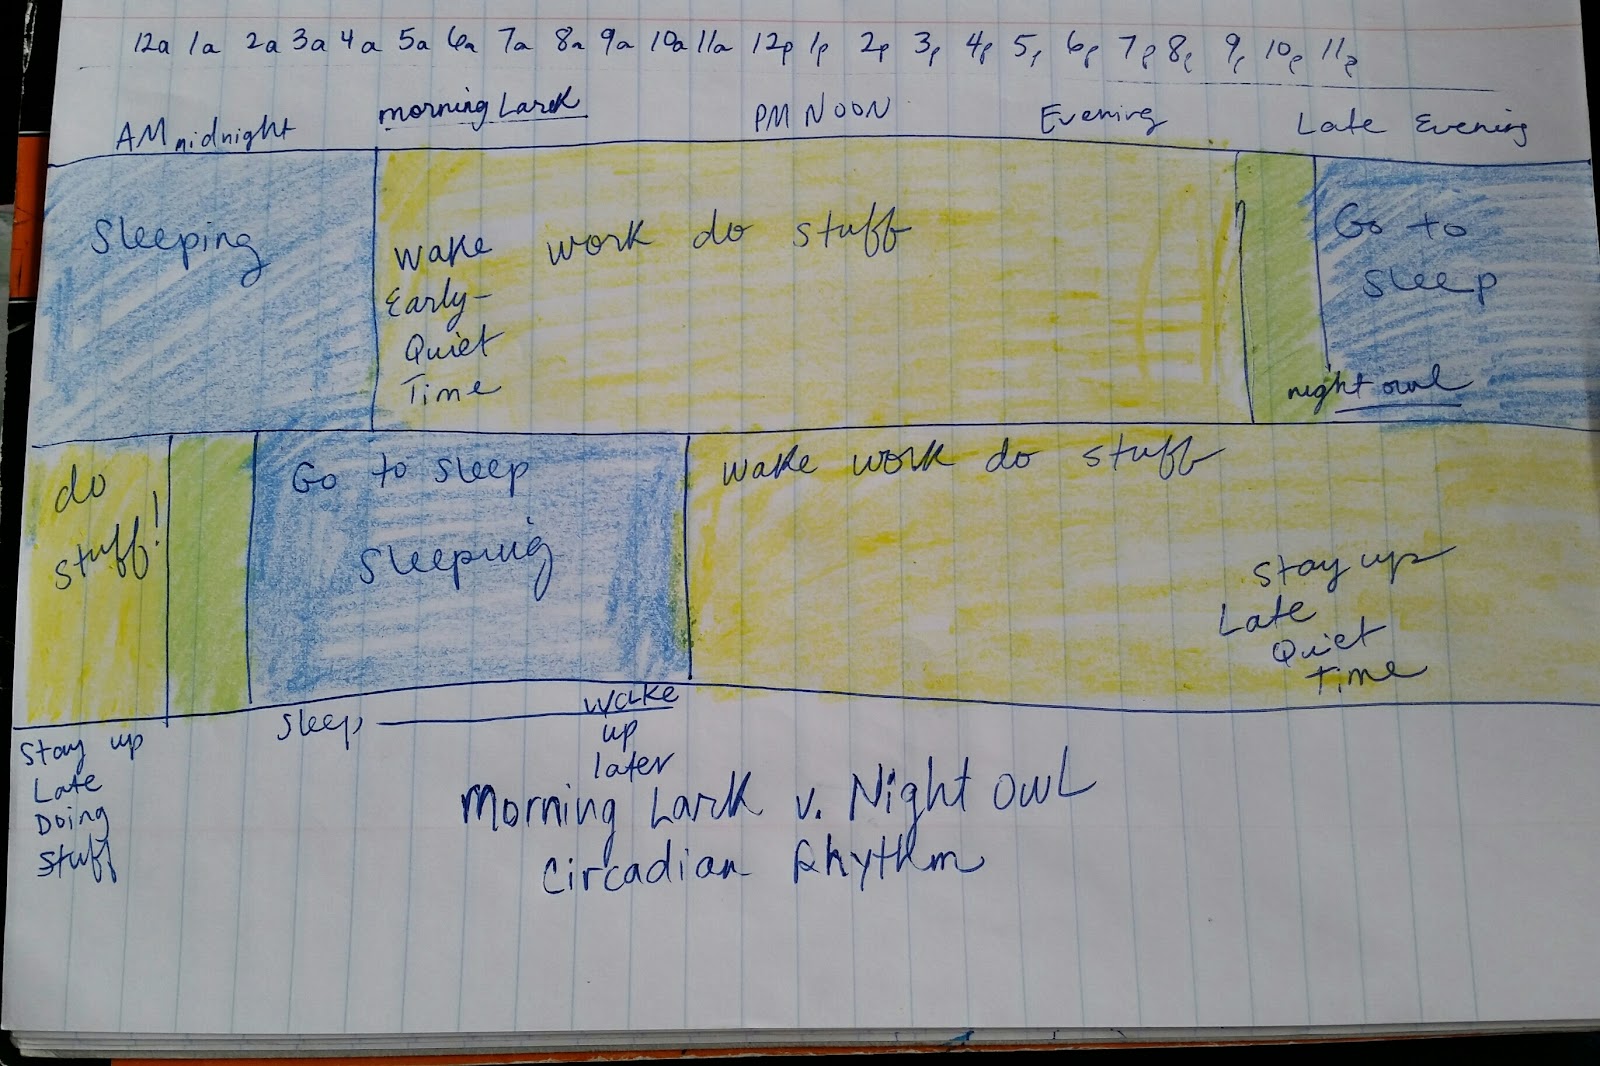 12a 1a 2a 3a 4a 5a 6a 7a 8a 9a 10a 11a 12p 1p 2p 3p 4p 5p 6p 7p 8p 9p 10p 11p
AM midnight
morning Lark
PM NOON
Evening
Late Evening
Sleeping
Wake work do stuff
Early-
Quiet
Time
Go to
Sleep
night owl
do
stuff!
Go to sleep
Sleeping
Wake work do stuff
Stay up
Late
Quiet
Time
Stay up
Late
Doing
Stuff
Sleep
Wake
up
later
Morning Lark v. Night Owl
Circadian Rhythm